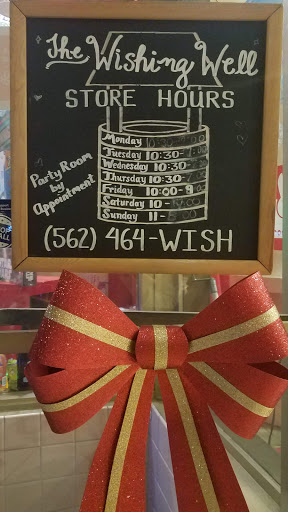 The Wishing Well
STORE HOURS
Party Room
by
Appointment
Monday
Tuesday 10:30-
Wednesday 10:30-
Thursday 10:30-
Friday 10:00-9
Saturday 10-
Sunday 11-
(562) 464-WISH